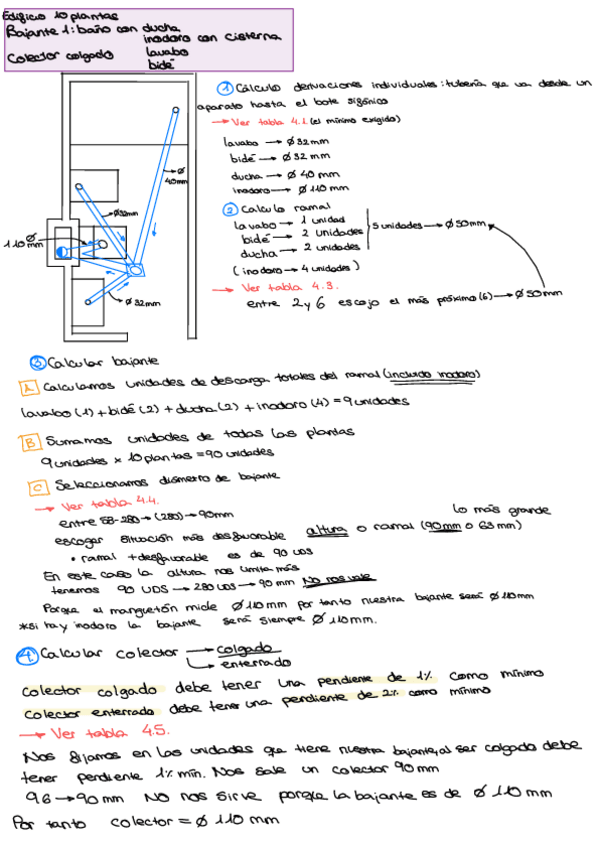 Edificio 10 plantas
Bajante 1: baño con ducha
inodoro con cisterna
lavabo
bidé
Colector colgado
① Cálculo derivaciones individuales: tubería que va desde un
aparato hasta el bote sifónico
→ Ver tabla 4.1. (el mínimo exigido)
lavabo → Ø 32 mm
bidé → Ø 32 mm
ducha → Ø 40 mm
inodoro → Ø 110 mm
② Calculo ramal
lavabo → 1 unidad
bidé → 2 unidades
ducha → 2 unidades
5 unidades → Ø 50mm
(inodoro → 4 unidades)
→ Ver tabla 4.3.
entre 2 y 6 escojo el más próximo (6) → Ø 50 mm
Ø 40mm
Ø 32mm
Ø 110 mm
Ø 32 mm
③ Calcular bajante
A Calculamos unidades de descarga totales del ramal (incluido inodoro)
lavabo (1) + bidé (2) + ducha (2) + inodoro (4) = 9 unidades
B Sumamos unidades de todas las plantas
9 unidades x 10 plantas = 90 unidades
C Seleccionamos diámetro de bajante
→ Ver tabla 4.4.
entre 58-280 → (280) → 90mm
lo más grande
escoger situación más desfavorable altura o ramal (90mm o 63 mm)
• ramal + desfavorable es de 90 UDS
En este caso la altura nos limita más
tenemos 90 UDS → 280 UDS → 90 mm No nos vale
Porque el manguetón mide Ø 110 mm por tanto nuestra bajante será Ø 110 mm
*si hay inodoro la bajante será siempre Ø 110 mm.
4. Calcular colector → colgado
→ enterrado
colector colgado debe tener una pendiente de 1% como mínimo
colector enterrado debe tener una pendiente de 2% como mínimo
→ Ver tabla 4.5.
Nos fijamos en las unidades que tiene nuestra bajante, al ser colgado debe
tener pendiente 1% mín. Nos sale un colector 90 mm
96 → 90 mm No nos sirve porque la bajante es de Ø 110 mm
Por tanto colector = Ø 110 mm